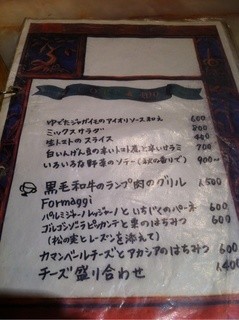 ゆでたジャガイモのアイオリソース和え 600
ミックスサラダ 800
生トマトのスライス 400
白いんげん豆の辛いトマト煮と辛いサラミ 700
いろいろな野菜のソテー(秋の香りで) 900~
黒毛和牛のランプ肉のグリル 1,500
Formaggi
パルミジャーノレッジャーノといちじくのパネーネ 600
ゴルゴンゾーラピッカンテと栗のはちみつ 600
(松の実とレーズンを添えて)
カマンベールチーズとアカシアのはちみつ 600
チーズ盛り合わせ 1,400